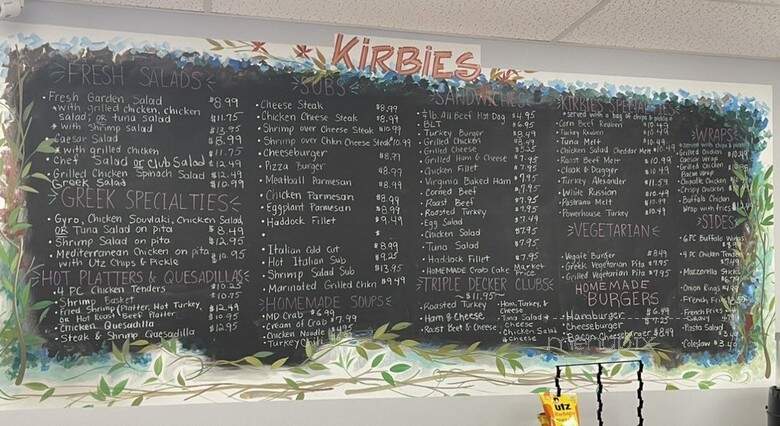 KiRBiES
FRESH SALADS
Fresh Garden Salad $8.99
with grilled chicken, chicken
salad, or tuna salad $11.75
with shrimp salad $13.95
Caesar Salad $8.99
with grilled chicken $11.75
Chef Salad or Club Salad
Grilled Chicken Spinach Salad $12.49
Greek Salad $10.99
GREEK SPECIALTIES
Gyro, Chicken Souvlaki, Chicken Salad
OR Tuna Salad on pita $8.49
Shrimp Salad on pita $12.95
Mediterranean Chicken on pita $10.95
with Utz Chips & Pickle
HOT PLATTERS & QUESADILLAS
4 PC Chicken Tenders $10.25
Shrimp Basket $10.75
Fried Shrimp Platter, Hot Turkey, $12.49
or Hot Roast Beef Platter
Chicken Quesadilla $10.95
Steak & Shrimp Quesadilla $12.95
SUBS
Cheese Steak $8.99
Chicken Cheese Steak $8.99
Shrimp over Cheese Steak $10.99
Shrimp over Chkn Cheese Steak $10.99
Cheeseburger
Pizza Burger $8.99
Meatball Parmesan
Chicken Parmesan $8.99
Eggplant Parmesan $8.99
Haddock Fillet $9.49
Italian Cold Cut $8.99
Hot Italian Sub $9.25
Shrimp Salad Sub $13.95
Marinated Grilled Chkn $9.49
HOMEMADE SOUPS
MD Crab $6.99
Cream of Crab $7.99
Chicken Noodle
Turkey Chili
SANDWICHES
1/4 lb. All Beef Hot Dog $4.95
BLT $6.95
Turkey Burger $8.49
Grilled Chicken $8.49
Grilled Cheese $5.25
Grilled Ham & Cheese $7.95
Chicken Fillet $7.95
Virginia Baked Ham $7.95
Corned Beef $7.95
Roast Beef $7.95
Roasted Turkey $7.95
Egg Salad $7.49
Chicken Salad $7.95
Tuna Salad $7.95
Haddock Fillet $7.95
HOMEMADE Crab Cake Market Price
TRIPLE DECKER CLUBS
$11.95
Roasted Turkey
Ham & Cheese
Roast Beef & Cheese
Ham, Turkey, & Cheese
Tuna Salad & Cheese
Chicken Salad & Cheese
KIRBIES SPECIALTIES
served with a bag of chips & pickle
Corn Beef Reuben $10.49
Turkey Reuben $10.49
Tuna Melt $10.49
Chicken Salad Cheddar Melt
Roast Beef Melt $10.99
Cloak & Dagger $10.49
Turkey Alexander $11.59
White Russian $10.49
Pastrami Melt $10.99
Powerhouse Turkey $10.49
VEGETARIAN
Veggie Burger $8.49
Greek Vegetarian Pita $7.95
Grilled Vegetarian Pita $7.95
HOMEMADE
BURGERS
Hamburger $6.99
Cheeseburger $7.25
Bacon Cheeseburger $8.49
WRAPS
served with chips & pickle
Grilled Chicken $10.49
Caesar Wrap
Grilled Chicken
Bacon Wrap
Chipotle Chicken
Crispy Chicken
Buffalo Chicken
Wrap with fries $12.49
SIDES
6 PC Buffalo Wings
4 PC Chicken Tenders
Mozzarella Sticks
Onion Rings
French Fries
French Fries
Gravy
Pasta Salad
Coleslaw $3.40
utz